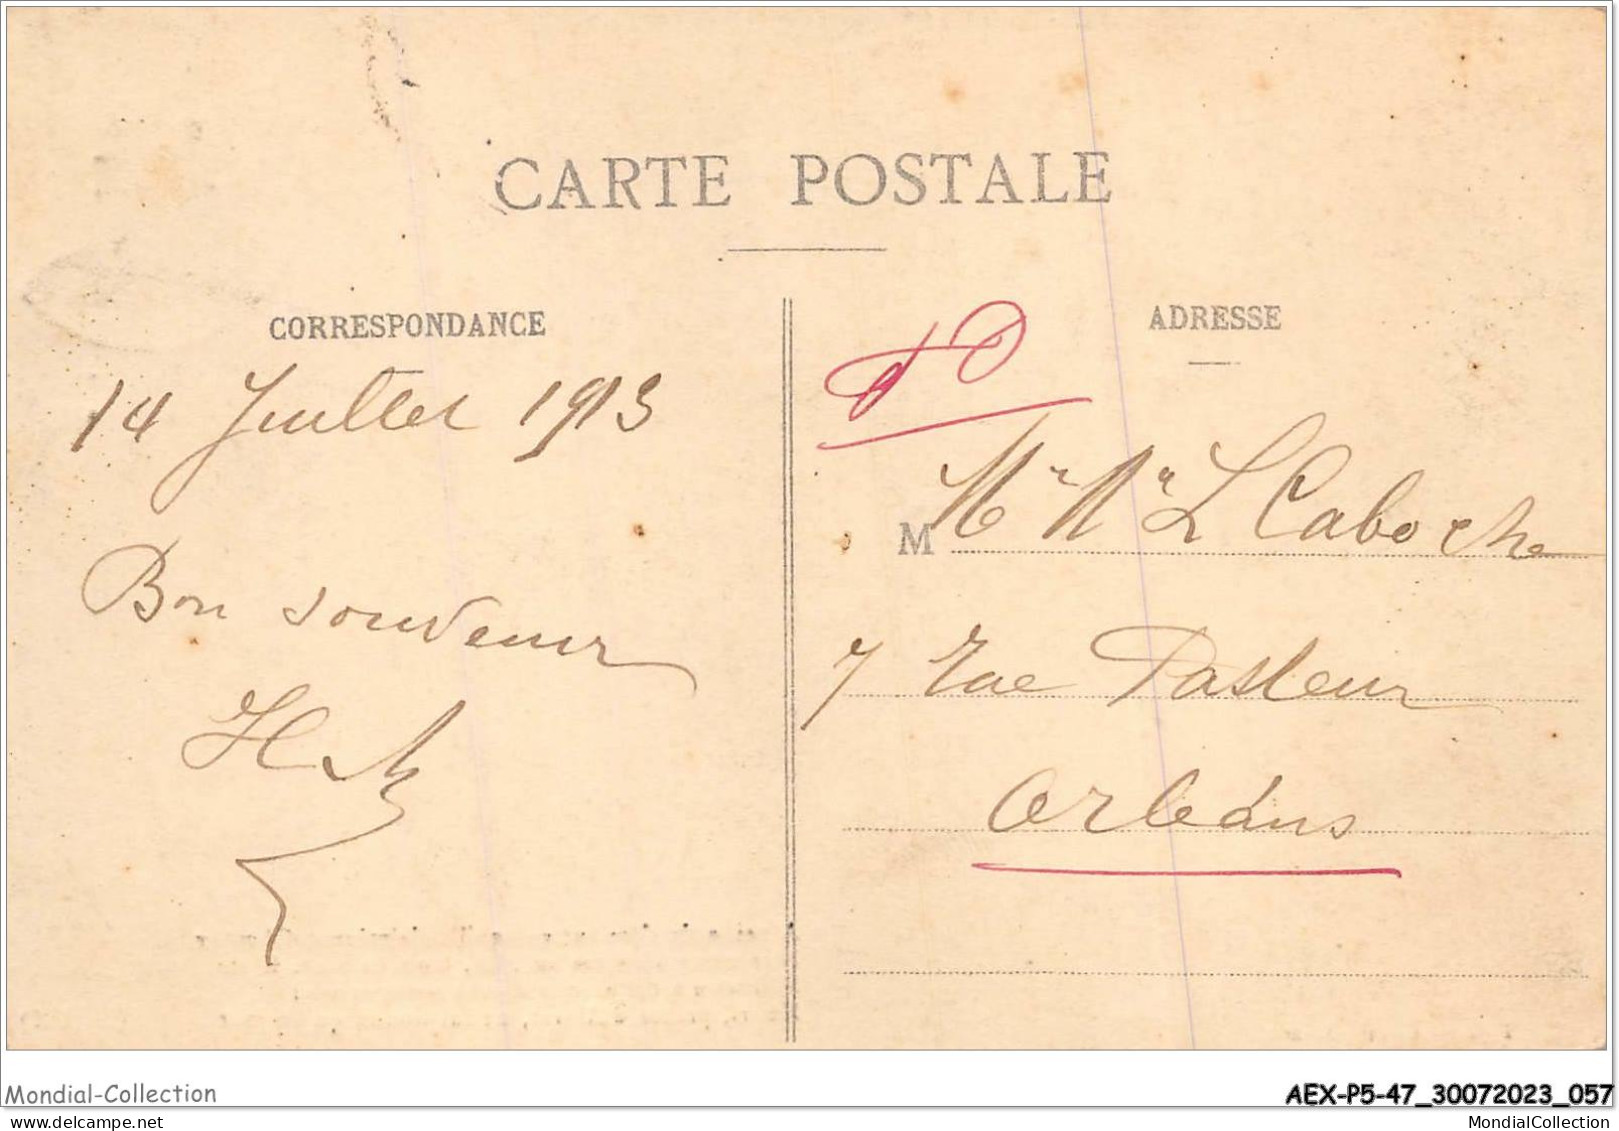 CARTE POSTALE
CORRESPONDANCE
ADRESSE
14 Juillet 1913
Bon souvenir
M
L Caboche
7 Rue Pasteur
Orléans
Mondial-Collection
AEX-P5-47_30072023_057
MondialCollection
MondialCollection